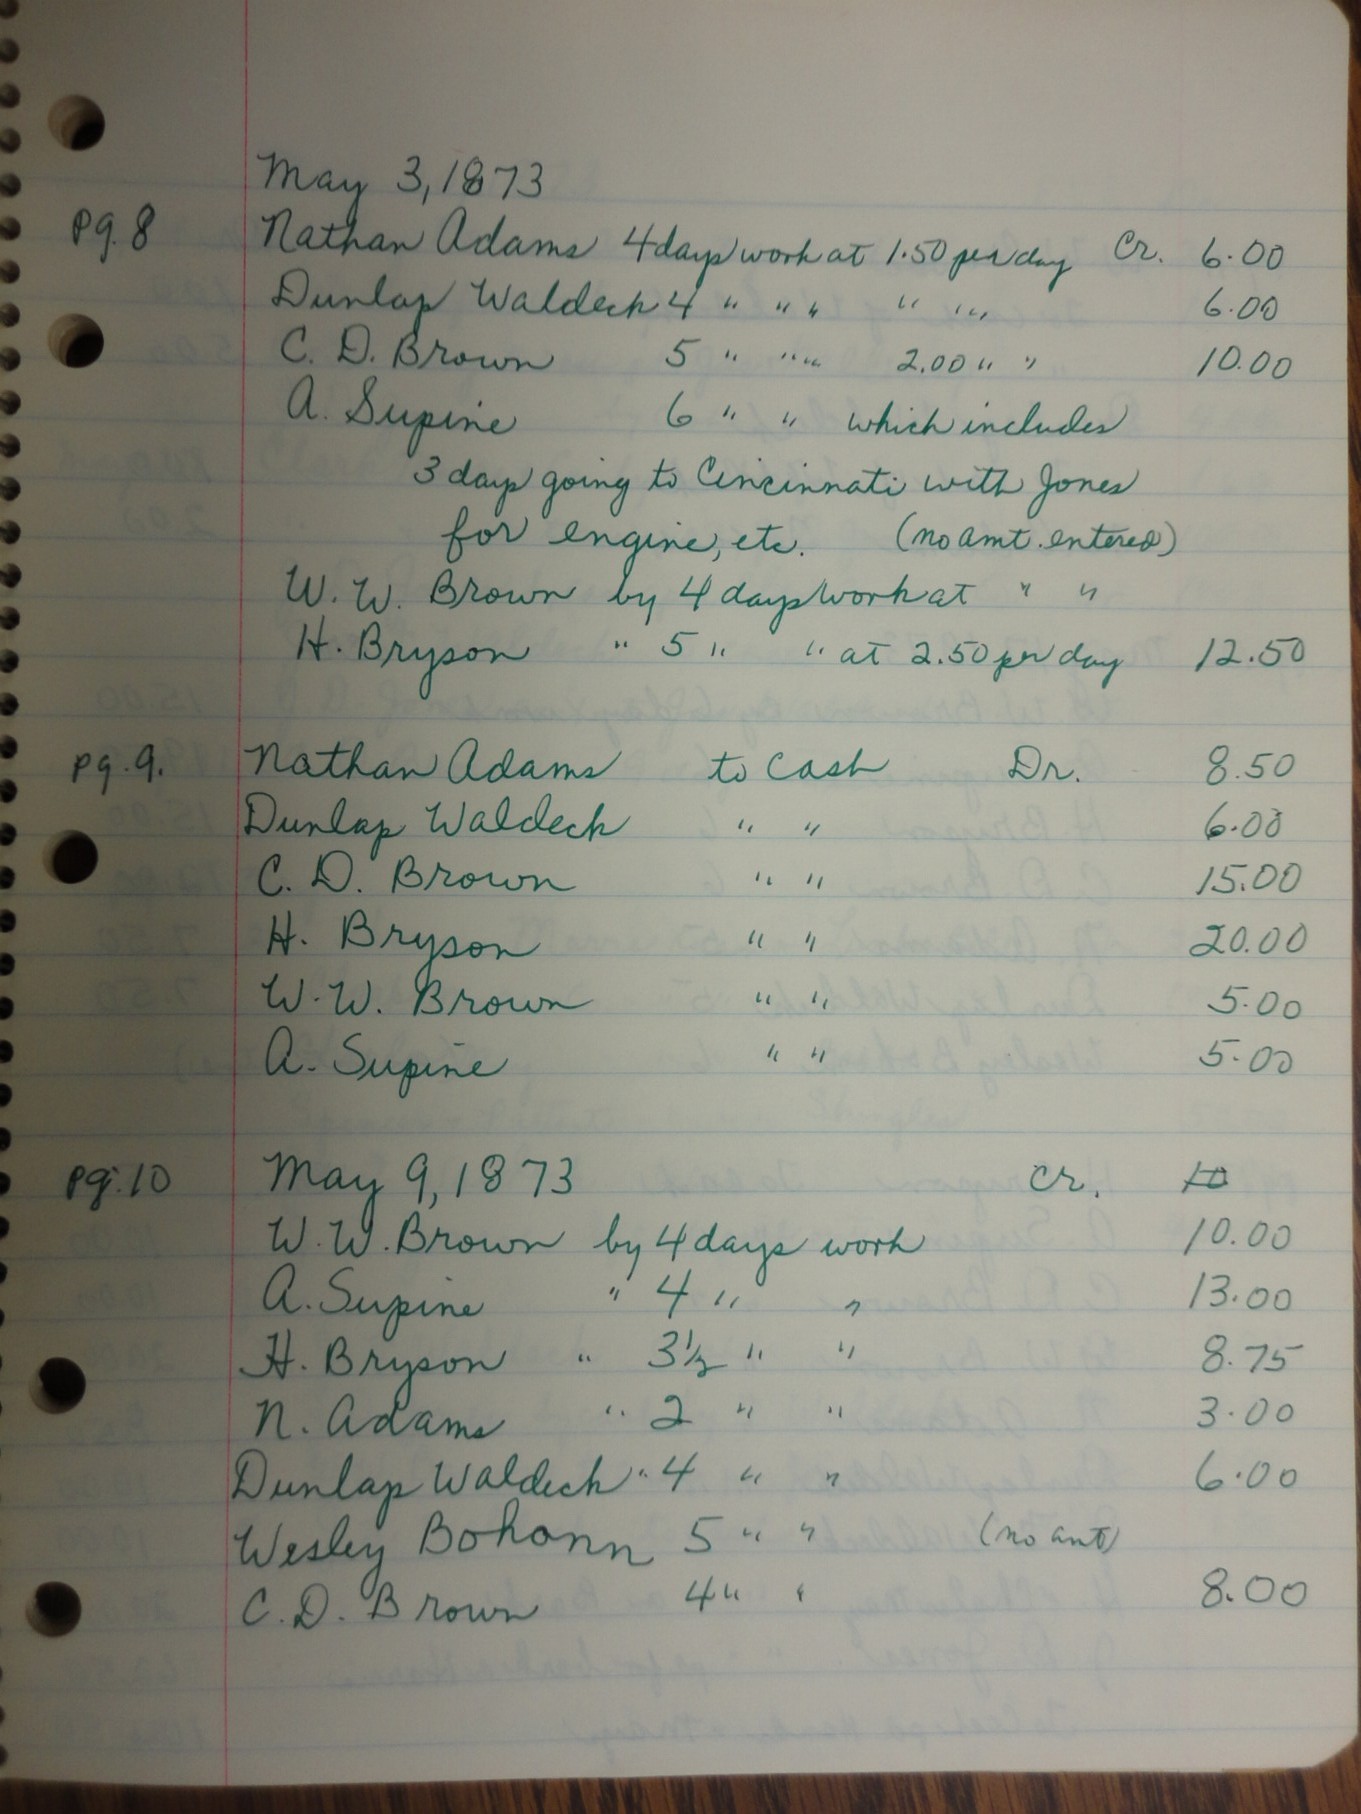 May 3, 1873
pg. 8 Nathan Adams 4 days work at 1.50 per day Cr. 6.00
Dunlap Waldeck 4 " " " " " " 6.00
C. D. Brown 5 " " " 2.00 " " 10.00
A. Supine 6 " " which includes
3 days going to Cincinnati with Jones
for engine, etc. (no amt. entered)
W. W. Brown by 4 days work at " "
H. Bryson " 5 " " at 2.50 per day 12.50
pg. 9. Nathan Adams to Cash Dr. 8.50
Dunlap Waldeck " " 6.00
C. D. Brown " " 15.00
H. Bryson " " 20.00
W. W. Brown " " 5.00
A. Supine " " 5.00
pg. 10 May 9, 1873 Cr. 10
W. W. Brown by 4 days work 10.00
A. Supine " 4 " " 13.00
H. Bryson " 3½ " " 8.75
N. Adams " 2 " " 3.00
Dunlap Waldeck " 4 " " 6.00
Wesley Bohonn 5 " " (no amt)
C. D. Brown 4 " " 8.00